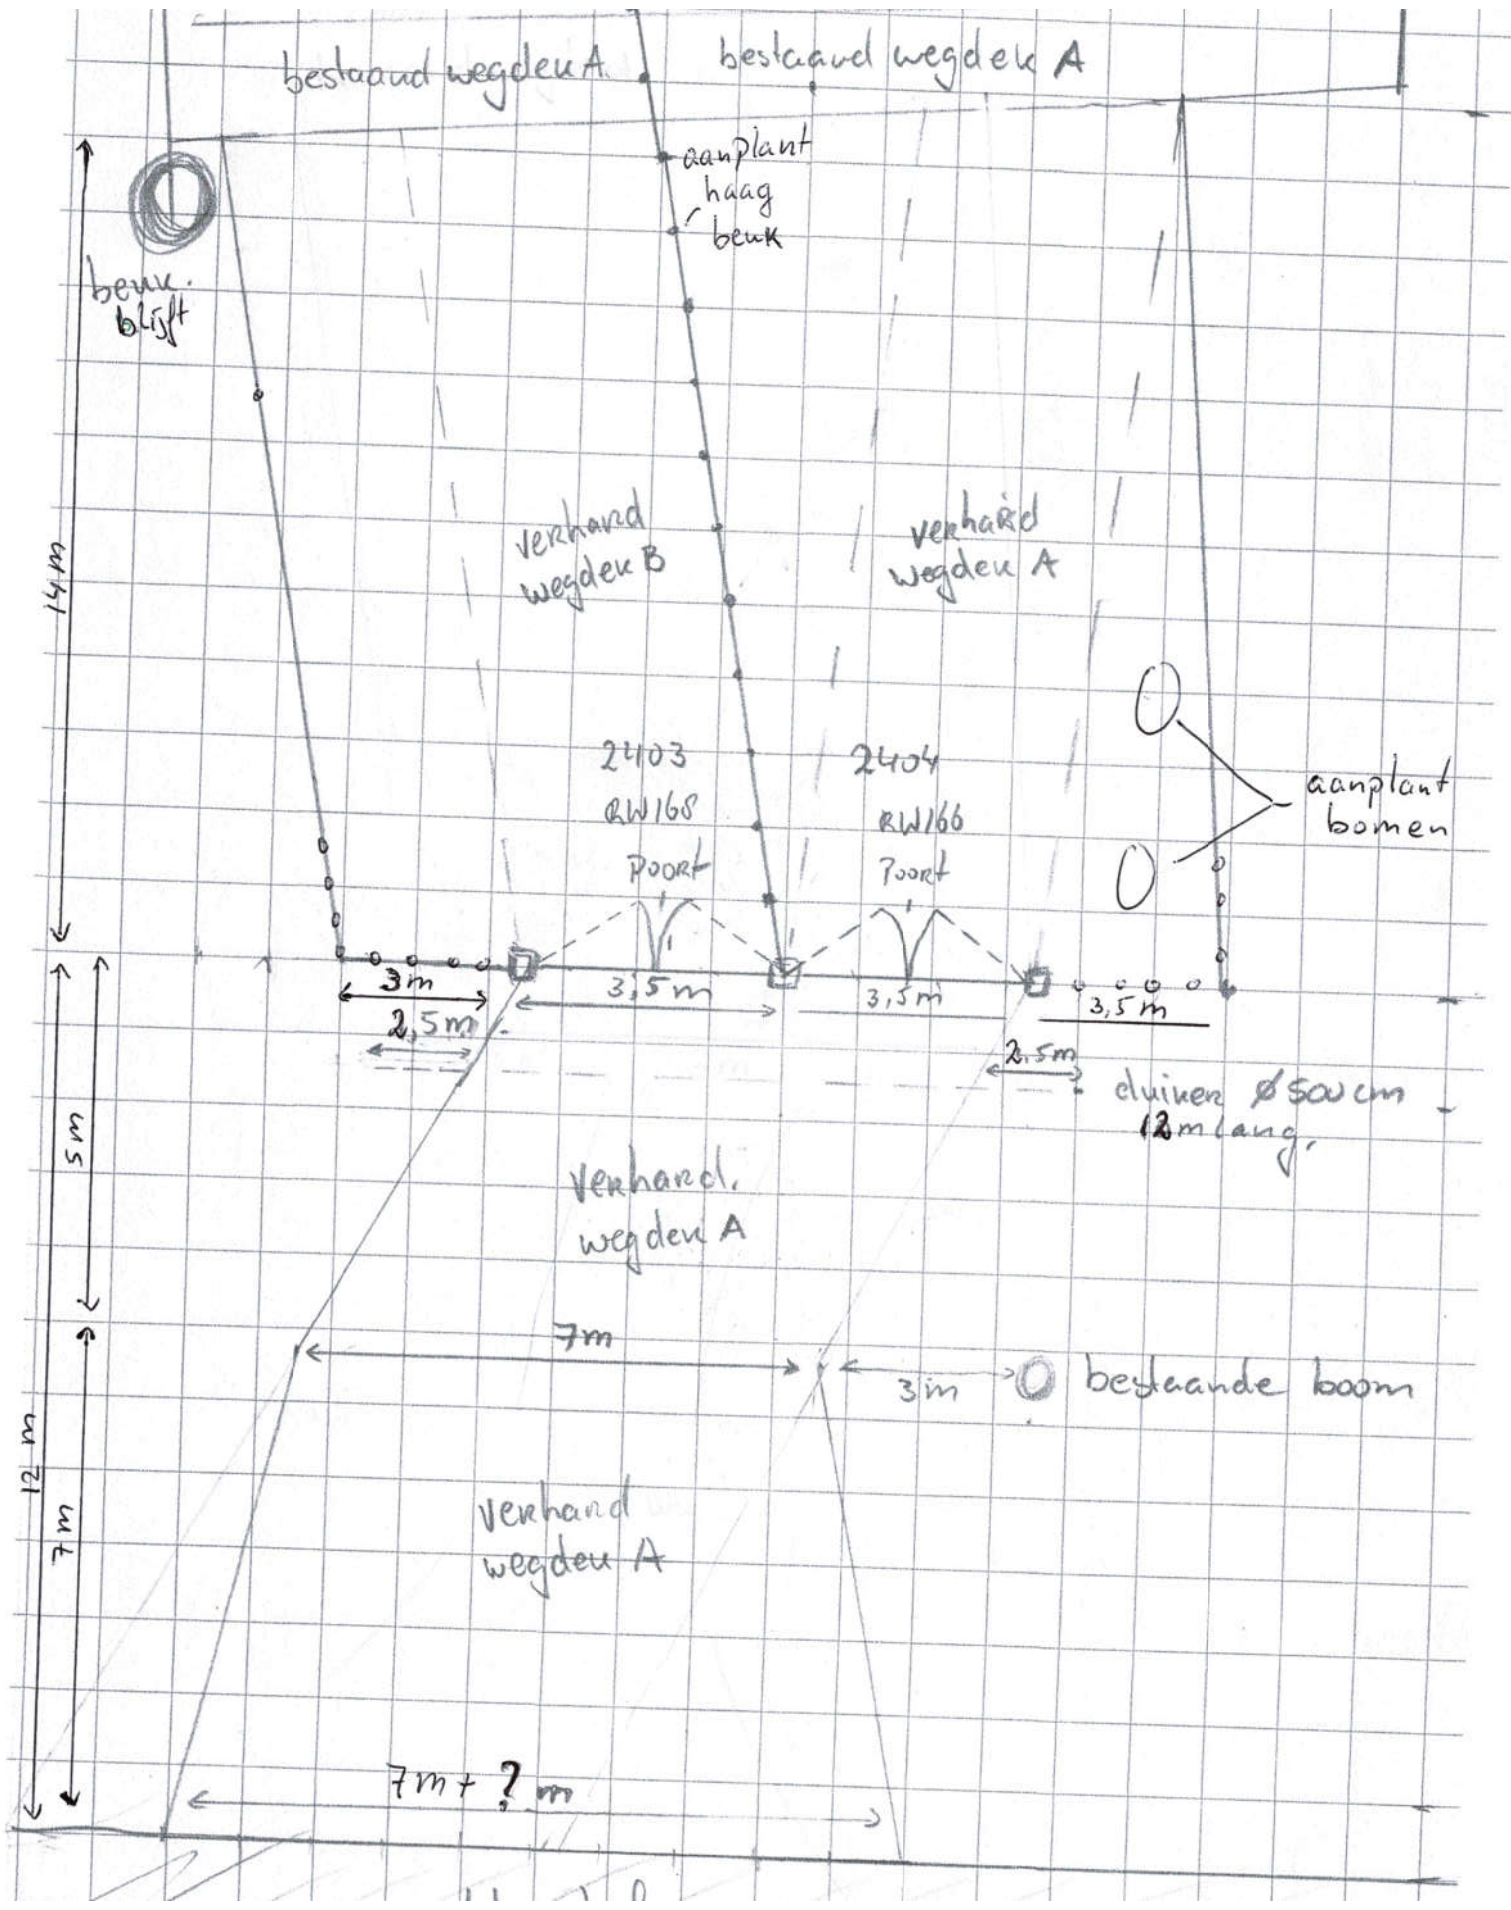 bestaand wegdek A.
bestaand wegdek A
aanplant
haag
beuk
beuk.
blijft
14 m
verhard
wegdek B
verhard
wegdek A
2403
RW168
Poort
2404
RW166
Poort
aanplant
bomen
3m
3,5m
3,5m
3,5m
2,5m
2.5m
duiker ø 500 cm
12m lang.
5m
verhard.
wegdek A
7m
3m
bestaande boom
12 m
7m
verhard
wegdek A
7m + ? m